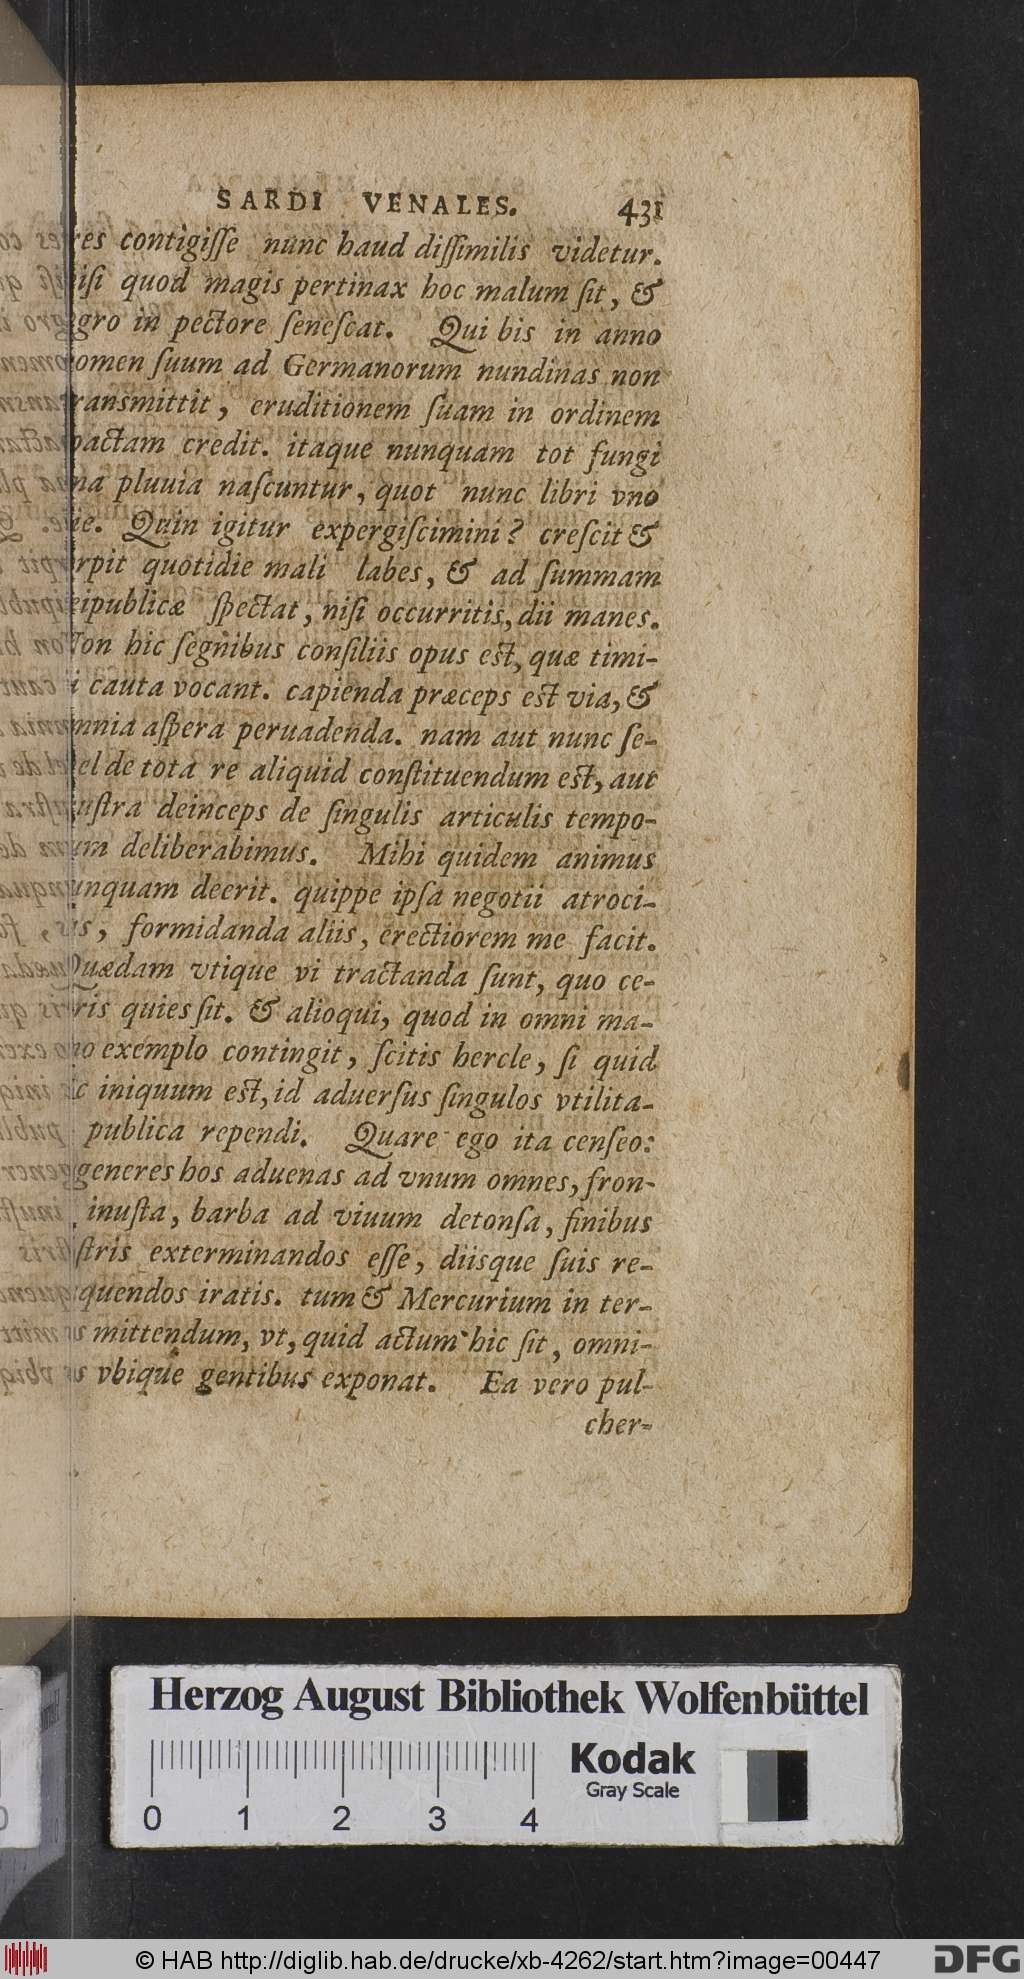 SARDI VENALES. 431
res contigisse nunc haud dissimilis videtur.
nisi quod magis pertinax hoc malum sit, &
ægro in pectore senescat. Qui bis in anno
nomen suum ad Germanorum nundinas non
transmittit, eruditionem suam in ordinem
coactam credit. itaque nunquam tot fungi
una pluuia nascuntur, quot nunc libri vno
die. Quin igitur expergiscimini? crescit &
serpit quotidie mali labes, & ad summam
reipublicæ spectat, nisi occurritis, dii manes.
Non hic segnibus consiliis opus est, quæ timi-
di cauta vocant. capienda præceps est via, &
omnia aspera peruadenda. nam aut nunc se-
mel de tota re aliquid constituendum est, aut
frustra deinceps de singulis articulis tempo-
rum deliberabimus. Mihi quidem animus
nunquam deerit. quippe ipsa negotii atroci-
tas, formidanda aliis, erectiorem me facit.
Quædam vtique vi tractanda sunt, quo ce-
teris quies sit. & alioqui, quod in omni ma-
gno exemplo contingit, scitis hercle, si quid
hic iniquum est, id aduersus singulos vtilita-
te publica rependi. Quare ego ita censeo:
degeneres hos aduenas ad vnum omnes, fron-
te inusta, barba ad viuum detonsa, finibus
nostris exterminandos esse, diisque suis re-
linquendos iratis. tum & Mercurium in ter-
ras mittendum, vt, quid actum hic sit, omni-
bus vbique gentibus exponat. Ea vero pul-
cher-
Herzog August Bibliothek Wolfenbüttel
Kodak
Gray Scale
0 1 2 3 4
© HAB http://diglib.hab.de/drucke/xb-4262/start.htm?image=00447
DFG